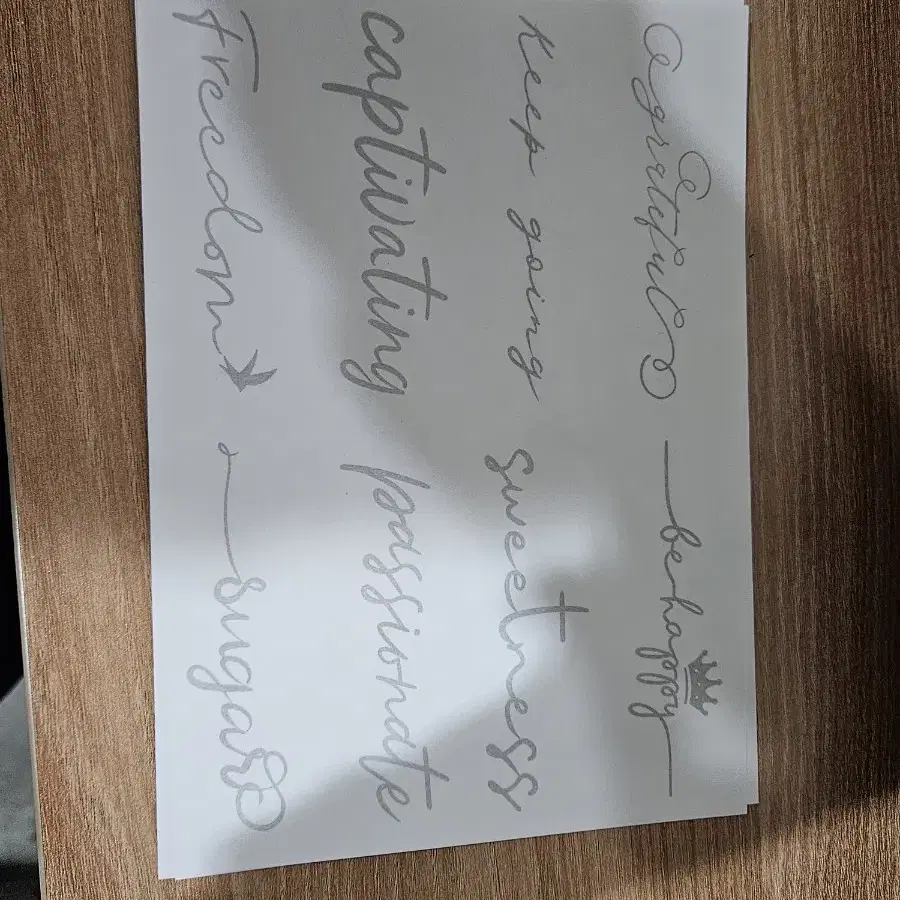 grateful be happy
Keep going sweetness
captivating passionate
Freedom sugar